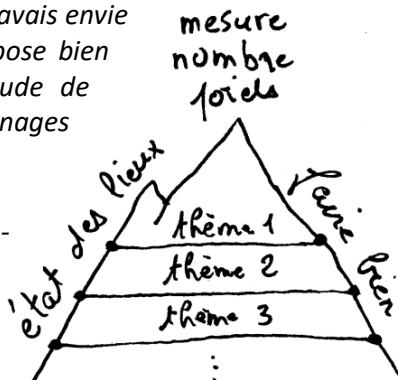 avais envie
pose bien
ude de
nages
-
mesure
nombre
poids
état des lieux
faire bien
thème 1
thème 2
thème 3
⋮